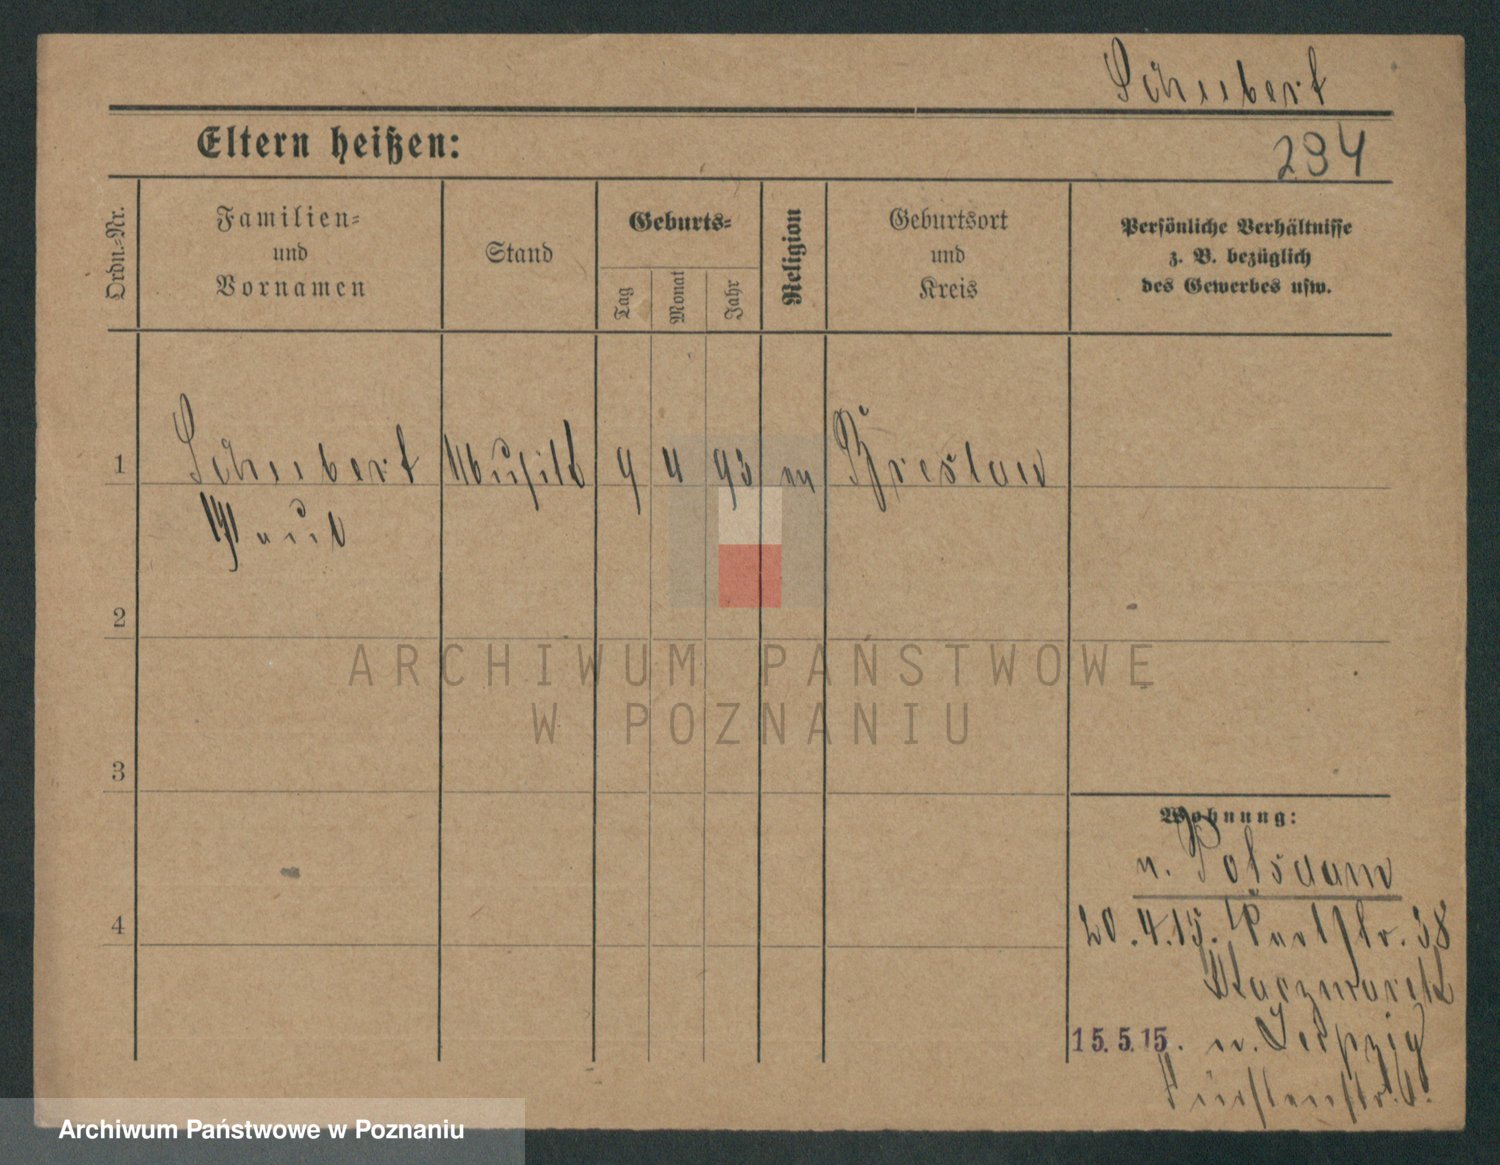 Schubert
Eltern heißen:
234
Ordn.-Nr.
Familien-
und
Vornamen
Stand
Geburts-
Tag
Monat
Jahr
Religion
Geburtsort
und
Kreis
Persönliche Verhältnisse
z. B. bezüglich
des Gewerbes usw.
1
Schubert
9 4 93
Breslau
Paul
2
ARCHIWUM PAŃSTWOWE
W POZNANIU
3
Wohnung:
n. Potsdam
4
20.4.15. 38
Kaczmarek
15.5.15. n. Leipzig
Archiwum Państwowe w Poznaniu